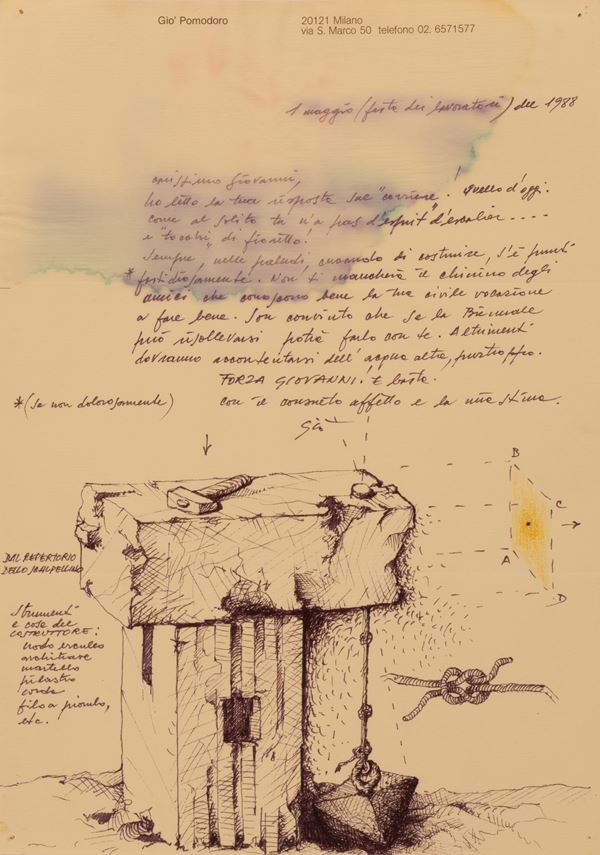 Gio' Pomodoro
20121 Milano
via S. Marco 50 telefono 02. 6571577
1 maggio (festa dei lavoratori) del 1988
carissimo Giovanni,
ho letto la tua risposta sul "corriere"! Quello d'oggi.
come al solito tu n'a pas d'esprit "d'escalier ----
e "tocchi" di fioretto!
Sempre, nelle paludi, cercando di costruire, s'è punti
* fastidiosamente. Non ti mancherà il chinino degli
amici che conoscono bene la tua civile vocazione
a fare bene. Son convinto che se la Biennale
può risollevarsi potrà farlo con te. Altrimenti
dovranno accontentarsi dell'acqua alta, purtroppo.
FORZA GIOVANNI! E basta.
*(se non dolorosamente)
con il consueto affetto e la mia stima.
Giò
B
C
A
D
DAL REPERTORIO
DELLO SCALPELLINO
Strumenti
e cose del
COSTRUTTORE:
nodo erculeo
architrave
martello
pilastro
corda
filo a piombo,
etc.